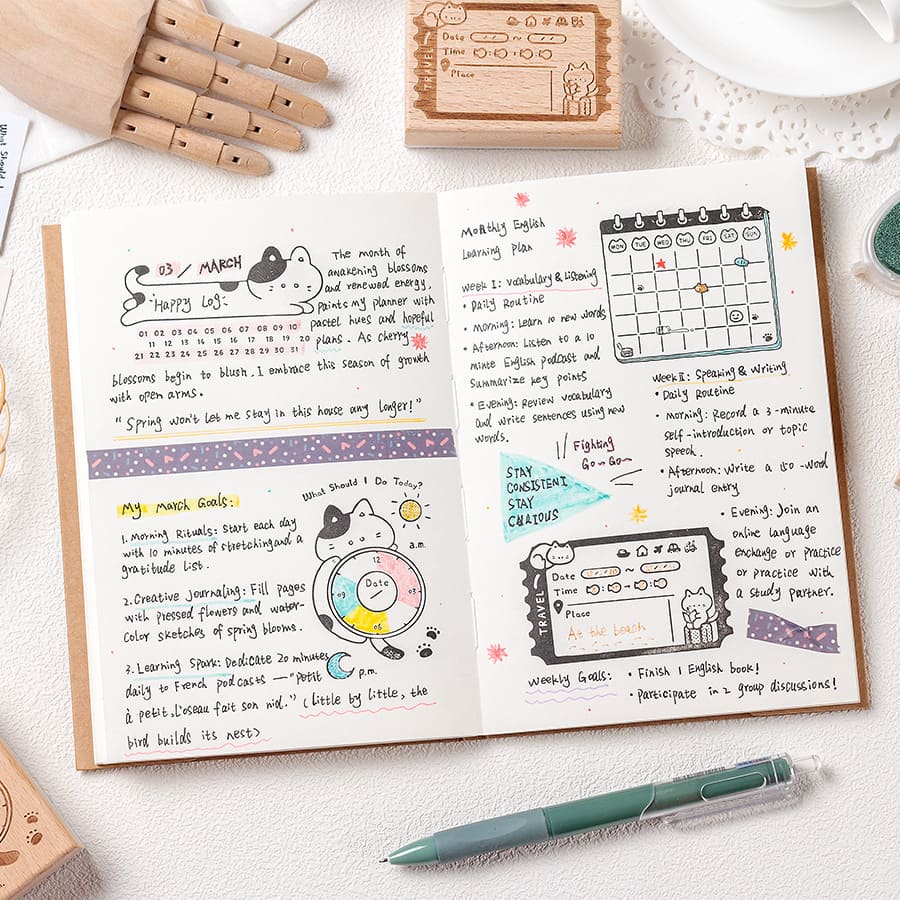 What Should I
TRAVEL
Date ~
Time
Place
03 / MARCH
Happy Log
01 02 03 04 05 06 07 08 09 10
11 12 13 14 15 16 17 18 19 20
21 22 23 24 25 26 27 28 29 30 31
The month of
awakening blossoms
and renewed energy,
paints my planner with
pastel hues and hopeful
plans. As cherry
blossoms begin to blush, I embrace this season of growth
with open arms.
"Spring won't let me stay in this house any longer!"
My March Goals:
1. Morning Rituals: Start each day
with 10 minutes of stretching and a
gratitude list.
2. Creative journaling: Fill pages
with pressed flowers and water-
color sketches of spring blooms.
3. Learning Spark: Dedicate 20 minutes
daily to French podcasts — "Petit
à petit, l'oseau fait son nid." (little by little, the
bird builds its nest>
What Should I Do Today?
a.m.
12
03
06
09
Date
/
p.m.
Monthly English
Learning Plan
Week I: Vocabulary & Listening
• Daily Routine
• Morning: Learn 10 new words
• Afternoon: Listen to a 10
minte English podcast and
Summarize key points
• Evening: Review vocabulary
and write sentences using new
words.
MON TUE WED THU FRI SAT SUN
Week II: Speaking & Writing
• Daily Routine
• Morning: Record a 3-minute
self-introduction or topic
speech.
• Afternoon: Write a 150-word
journal entry
• Evening: Join an
online language
exchange or practice
or practice with
a study partner.
Fighting
Go~Go~
STAY
CONSISTENT
STAY
CURIOUS
TRAVEL
Date ~
Time
Place
At the beach
Weekly Goals:
• Finish 1 English book!
• Participate in 2 group discussions!